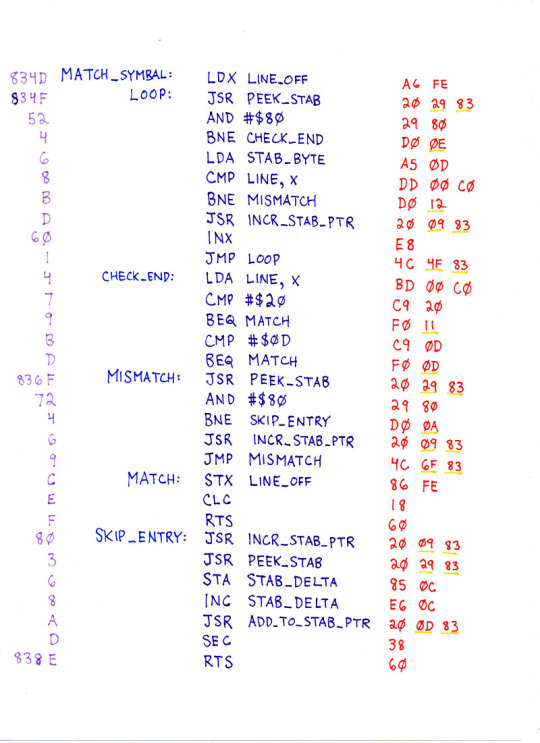 834D MATCH_SYMBAL: LDX LINE_OFF A6 FE
834F LOOP: JSR PEEK_STAB 20 29 83
52 AND #$80 29 80
4 BNE CHECK_END D0 0E
6 LDA STAB_BYTE A5 0D
8 CMP LINE, X DD 00 C0
B BNE MISMATCH D0 12
D JSR INCR_STAB_PTR 20 09 83
60 INX E8
1 JMP LOOP 4C 4F 83
4 CHECK_END: LDA LINE, X BD 00 C0
7 CMP #$20 C9 20
9 BEQ MATCH F0 11
B CMP #$0D C9 0D
D BEQ MATCH F0 0D
836F MISMATCH: JSR PEEK_STAB 20 29 83
72 AND #$80 29 80
4 BNE SKIP_ENTRY D0 0A
6 JSR INCR_STAB_PTR 20 09 83
9 JMP MISMATCH 4C 6F 83
C MATCH: STX LINE_OFF 86 FE
E CLC 18
F RTS 60
80 SKIP_ENTRY: JSR INCR_STAB_PTR 20 09 83
3 JSR PEEK_STAB 20 29 83
6 STA STAB_DELTA 85 0C
8 INC STAB_DELTA E6 0C
A JSR ADD_TO_STAB_PTR 20 0D 83
D SEC 38
838E RTS 60